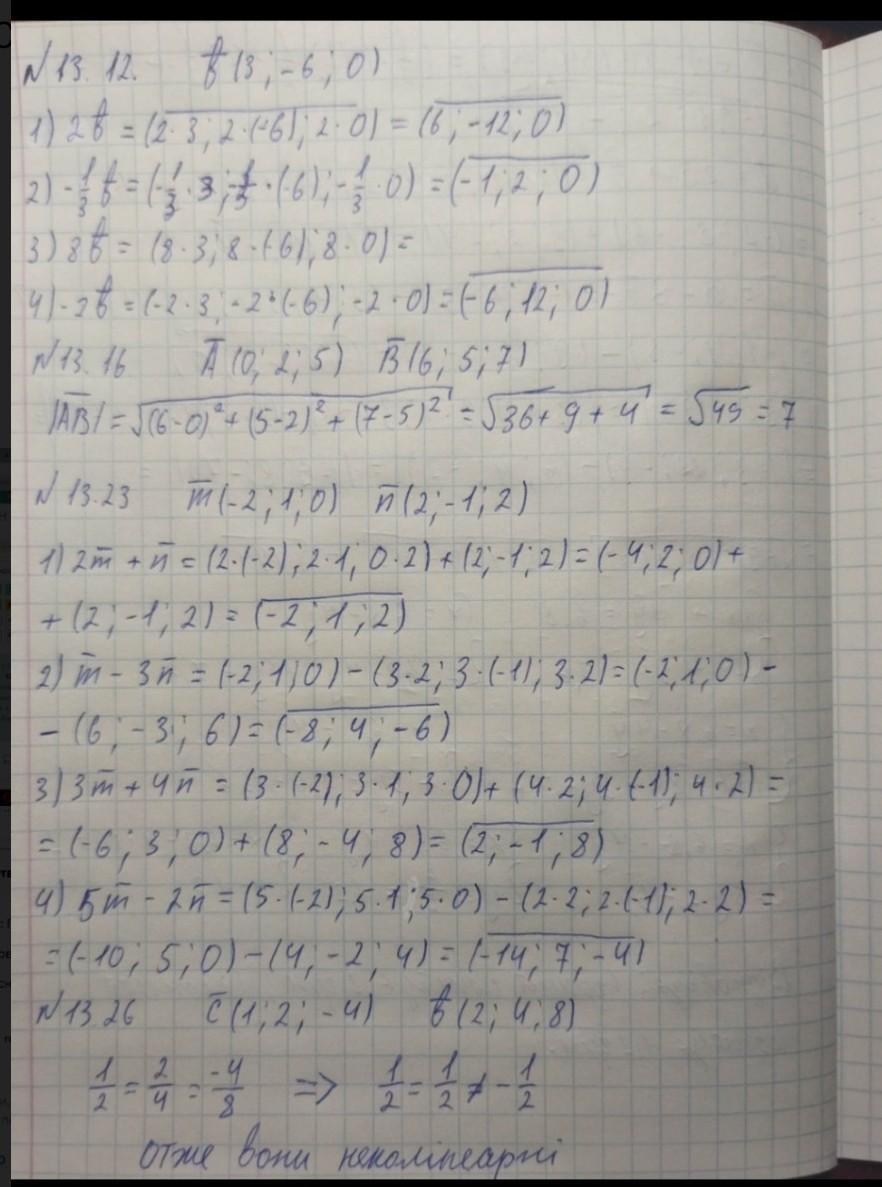 N 13.12. b̅ (3; -6; 0)
1) 2b̅ = (2·3; 2·(-6); 2·0) = (6; -12; 0)
2) -1/3 b̅ = (-1/3·3; -1/3·(-6); -1/3·0) = (-1; 2; 0)
3) 8b̅ = (8·3; 8·(-6); 8·0) =
4) -2b̅ = (-2·3; -2·(-6); -2·0) = (-6; 12; 0)
N 13.16 A̅ (0; 2; 5) B̅ (6; 5; 7)
|A̅B̅| = √(6-0)² + (5-2)² + (7-5)² = √36 + 9 + 4 = √49 = 7
N 13.23 m̅ (-2; 1; 0) n̅ (2; -1; 2)
1) 2m̅ + n̅ = (2·(-2); 2·1; 0·2) + (2; -1; 2) = (-4; 2; 0) +
+ (2; -1; 2) = (-2; 1; 2)
2) m̅ - 3n̅ = (-2; 1; 0) - (3·2; 3·(-1); 3·2) = (-2; 1; 0) -
- (6; -3; 6) = (-8; 4; -6)
3) 3m̅ + 4n̅ = (3·(-2); 3·1; 3·0) + (4·2; 4·(-1); 4·2) =
= (-6; 3; 0) + (8; -4; 8) = (2; -1; 8)
4) 5m̅ - 2n̅ = (5·(-2); 5·1; 5·0) - (2·2; 2·(-1); 2·2) =
= (-10; 5; 0) - (4; -2; 4) = (-14; 7; -4)
N 13.26 c̅ (1; 2; -4) b̅ (2; 4; 8)
1/2 = 2/4 = -4/8 => 1/2 = 1/2 ≠ -1/2
отже вони неколінеарні